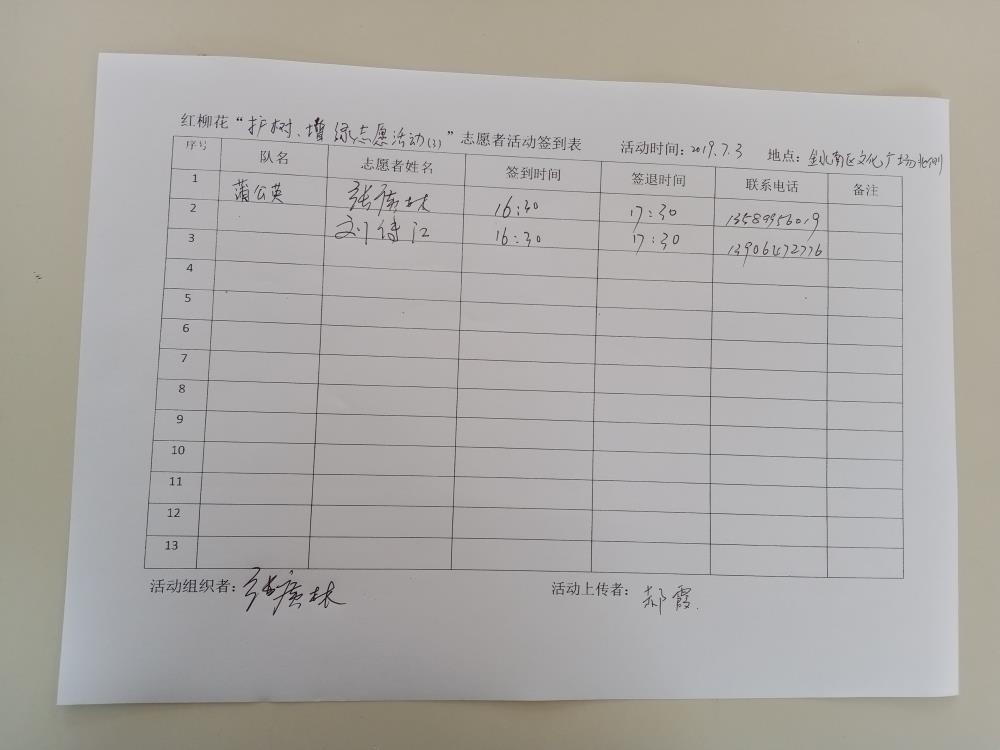 红柳花“护树、增绿志愿活动(3)”志愿者活动签到表 活动时间:2019.7.3 地点:南区文化广场
序号 队名 志愿者姓名 签到时间 签退时间 联系电话 备注
1 蒲公英 张广林 16:30 17:30 13589956019
2 刘传江 16:30 17:30 13906472776
3
4
5
6
7
8
9
10
11
12
13
活动组织者:张广林 活动上传者:郝霞